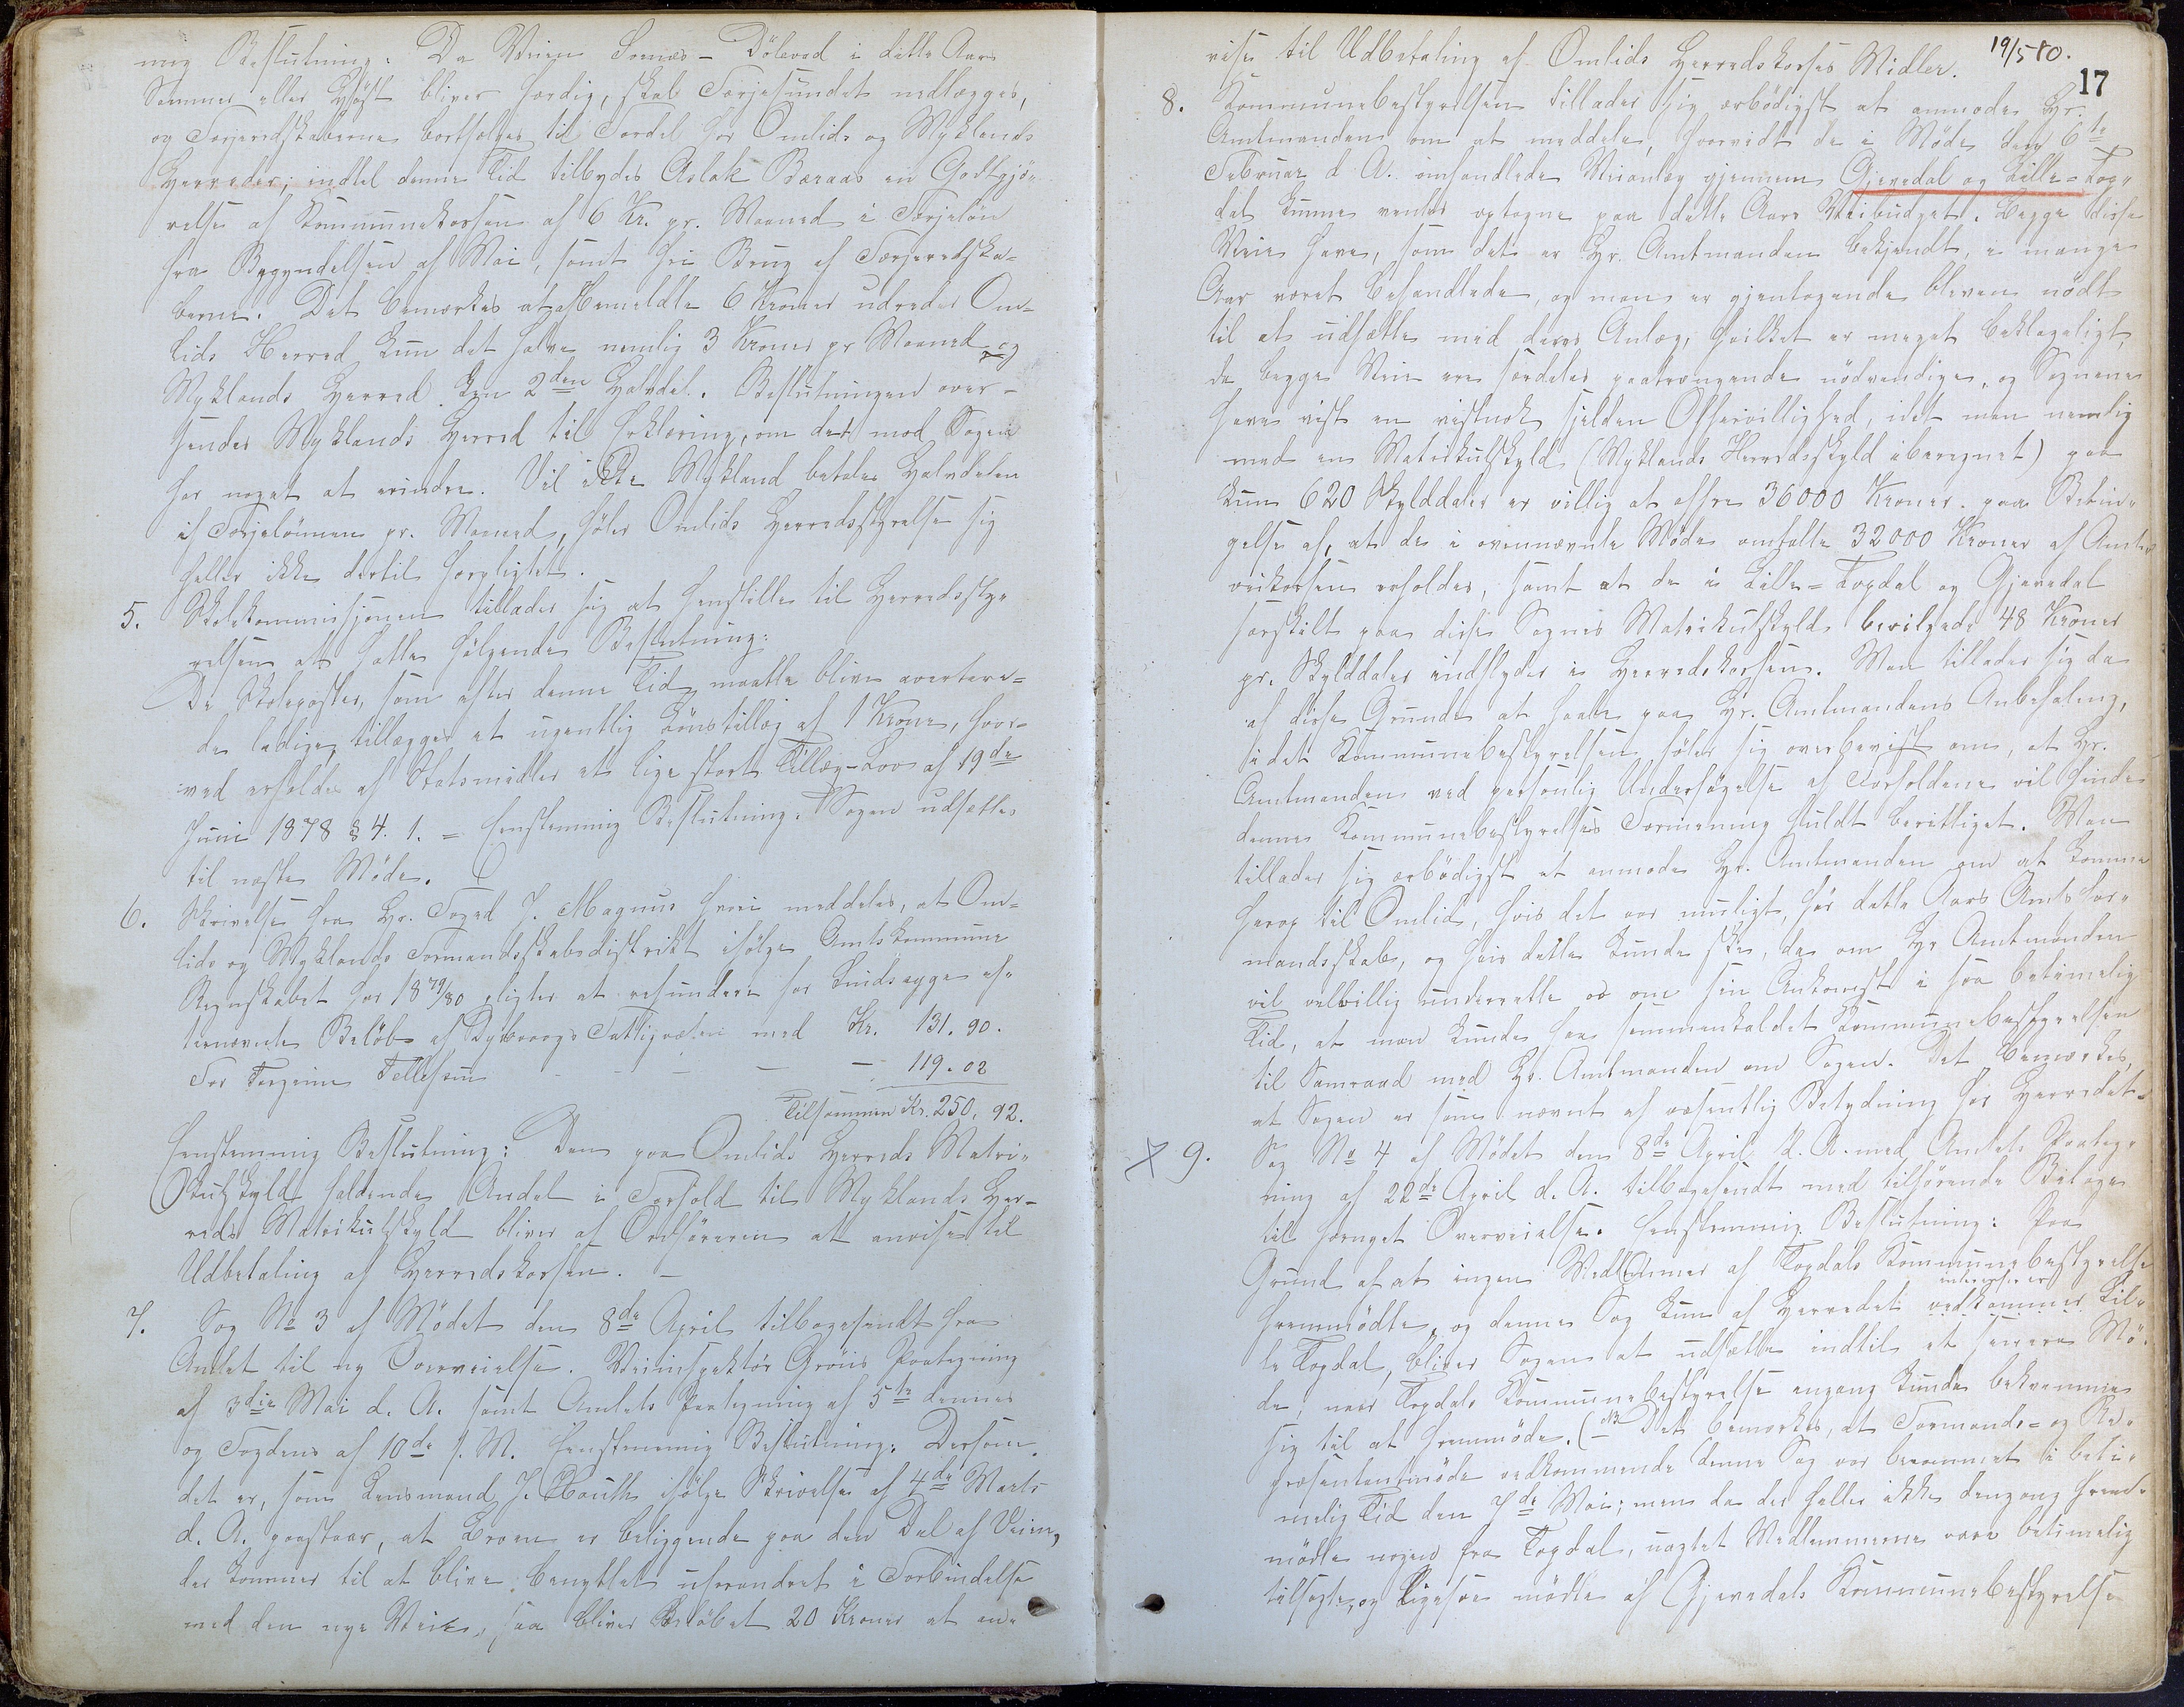 nig Beslutning: Da Veien Somes - Dölevad i dette Aars
Sommer eller Høst bliver færdig, skal Færjesundet nedlægges,
og Færjeredskaberne bortsælges til Fordel for Omlids og Myklands
Herreder; indtil denne Tid tilbydes Aslak Beraas en Godtgjö-
relse af Kommunekassen af 6 Kr. pr. Maaned i Færjelön
fra Begyndelsen af Mai, samt fri Brug af Færjeredska-
berne. Det bemærkes at af bemeldte 6 Kroner udreder Om-
lids Herred kun det halve nemlig 3 Kroner pr Maaned og
Myklands Herred den 2den Halvdel. Beslutningen over-
sendes Myklands Herred til Erklæring, om det mod Sagen
har noget at erindre. Vil ikke Mykland betale Halvdelen
af Færjelönnen pr. Maaned, föler Omlids Herredsstyrelse sig
heller ikke dertil forpligtet.
5. Skolekommissjonen tillader sig at henstille til Herredssty-
relsen at fatte fölgende Beslutning:
De Skoleposter, som efter denne Tid maatte blive avertere-
de ledige, tillægges et ugentlig Lönstillæg af 1 Krone, hvor-
ved erholdes af Statsmidler et lige stort Tillæg - Lov af 19de
Juni 1878 § 4. 1. = Enstemmig Beslutning: Sagen udsættes
til næste Möde.
6. Skrivelse fra Hr. Foged J. Magnus hvori meddeles, at Om-
lids og Myklands Formandskabsdistrikt ifölge Amtskommune
Regnskabet for 1879/80 pligter at refundere for Sindssyge ef-
ternævnte Belöb af Dybvaags Fattigvæsen med Kr. 131. 90.
For Torgrim Tellefsen - - - - 119. 02
Tilsammen Kr. 250. 92.
Enstemmig Beslutning: Den paa Omlids Herreds Matri-
kulskyld faldende Andel i Forhold til Myklands Her-
reds Matrikulskyld bliver af Ordföreren at anvise til
Udbetaling af Herredskassen. -
7. Sag No 3 af Mödet den 8de April tilbagesendt fra
Amtet til ny Overveielse. Veiinspektör Gröns Paategning
af 3die Mai d. A. samt Amtets Paategning af 5te dennes
og Fogdens af 10de s. M. Enstemmig Beslutning: Dersom
det er, som Lensmand J. Bouth ifölge Skrivelse af 4de Marts
d. A. paastaar, at Broen er beliggende paa den Del af Veien,
der kommer til at blive benyttet uforandret i Forbindelse
med den nye Vei, saa bliver Belöbet 20 Kroner at an-
19/5 80.
17
vise til Udbetaling af Omlids Herredskasses Midler.
8. Kommunebestyrelsen tillader sig ærbödigst at anmode Hr.
Amtmanden om at meddele, hvorvidt de i Möde den 6te
Februar d A. omhandlede Veianlæg gjennem Gjevedal og Lille-Top-
dal kunne ventes optagne paa dette Aars Veibudget. Begge disse
Veie have, som det er Hr. Amtmanden bekjendt, i mange
Aar været behandlede, og man er gjentagende bleven nödt
til at udsætte med deres Anlæg, hvilket er meget beklageligt,
da begge Veie ere særdeles paatrængende nödvendige, og Sognene
have vist en vistnok sjelden Offervillighed, idet man nemlig
med en Matrikulskyld (Myklands Herredsskyld iberegnet) paa
kun 620 Skylddaler er villig at offre 36000 Kroner paa Betin-
gelse af, at de i ovennævnte Möde omtalte 32000 Kroner af Amts-
veikassen erholdes, samt at de i Lille-Topdal og Gjevedal
særskilt paa disse Sognes Matrikulskyld bevilgede 48 Kroner
pr. Skylddaler indflyder i Herredskassen. Man tillader sig da
af disse Grunde at haabe paa Hr. Amtmandens Anbefaling,
idet Kommunebestyrelsen föler sig overbevist om, at Hr.
Amtmanden ved personlig Undersögelse af Forholdene vil finde
denne Kommunebestyrelses Formening fuldt berettiget. Man
tillader sig ærbödigst at anmode Hr. Amtmanden om at komme
herop til Omlid, hvis det var muligt, för dette Aars Amtsfor-
mandskab, og hvis dette kunde ske, da om Hr Amtmanden
vil velvillig underrette os om sin Ankomst i saa betimelig
Tid, at man kunde faa sammenkaldet Kommunebestyrelsen
til Samraad med Hr. Amtmanden om Sagen. Det bemærkes,
at Sagen er som nævnt af væsentlig Betydning for Herredet.
X 9. Sag No 4 af Mödet den 8de April d. A. med Amtets Paateg-
ning af 22de April d. A. tilbagesendt med tilhörende Bilage
til fornyet Overveielse. Enstemmig Beslutning: Paa
Grund af at ingen Medlemmer af Topdals Kommunebestyrelse
fremmödte, og denne Sag kun af Herredet vedkommer Lil-
le Topdal, bliver Sagen at udsætte indtil et senere Mö-
de, naar Topdals Kommunebestyrelse engang kunde bekvemme
sig til at fremmöde. (NB Det bemærkes, at Formands- og Re-
præsentantmöde vedkommende denne Sag var berammet i beti-
melig Tid den 7de Mai; men da der heller ikke dengang frem-
mödte nogen fra Topdal, uagtet Medlemmerne vare betimelig
tilsagte, og ligesaa mödte af Gjevedals Kommunebestyrelse